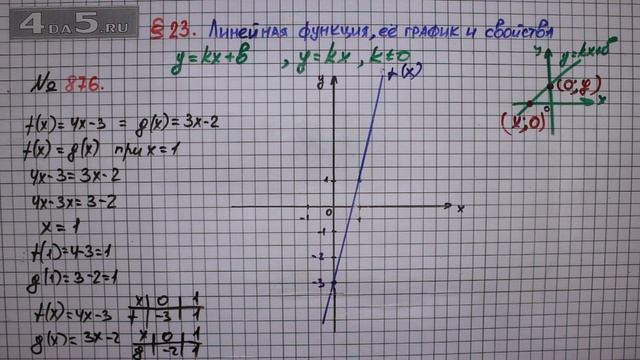 4DA5.RU
§ 23. Линейная функция, её график и свойства
y=kx+b , y=kx, k≠0
№ 876.
f(x)=4x-3 = g(x)=3x-2
f(x)=g(x) при x=1
4x-3=3x-2
4x-3x=3-2
x=1
f(1)=4-3=1
g(1)=3-2=1
f(x)=4x-3 x 0 1
f -3 1
g(x)=3x-2 x 0 1
g -2 1
y f(x)
1
-1 0 x
-1
-2
-3
y y=kx+b
(0;y)
0 x
(x;0)